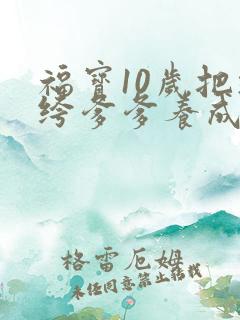 福寶10歲把
绔爹爹養成
格雷厄姆
未任同意禁止转载